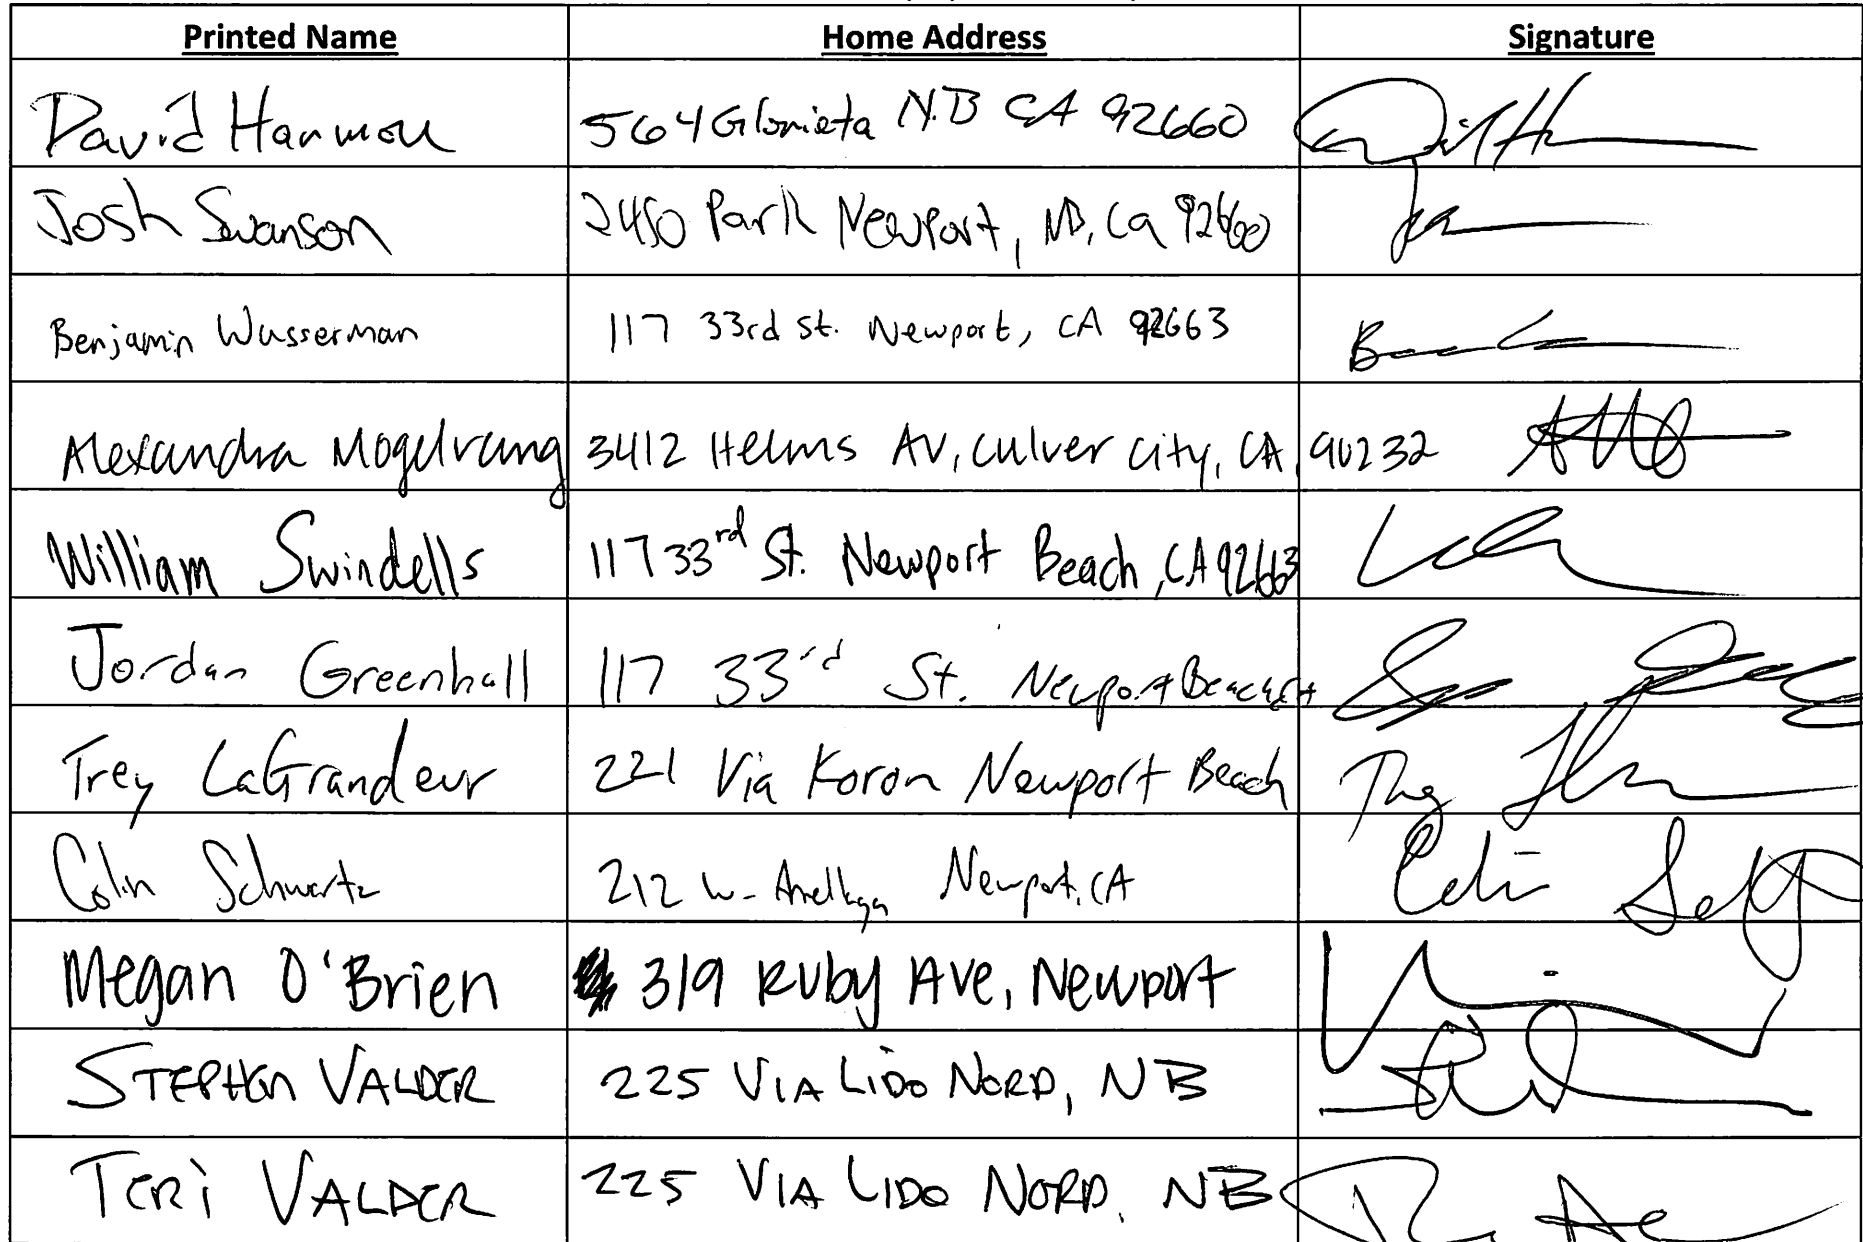 Printed Name Home Address Signature
David Harmon 564 Glorieta N.B CA 92660
Josh Swanson 2450 Park Newport, NB, Ca 92660
Benjamin Wusserman 117 33rd St. Newport, CA 92663
Alexandra Mogelvang 3412 Helms AV, Culver City, CA, 90232
William Swindells 117 33rd St. Newport Beach, CA 92663
Jordan Greenhall 117 33rd St. Newport Beach CA
Trey LaGrandeur 221 Via Koron Newport Beach
Colin Schwartz 212 W- Newport, CA
Megan O'Brien 319 Ruby Ave, Newport
STEPHEN VALDER 225 VIA LIDO NORD, NB
TERi VALDER 225 VIA LIDO NORD, NB